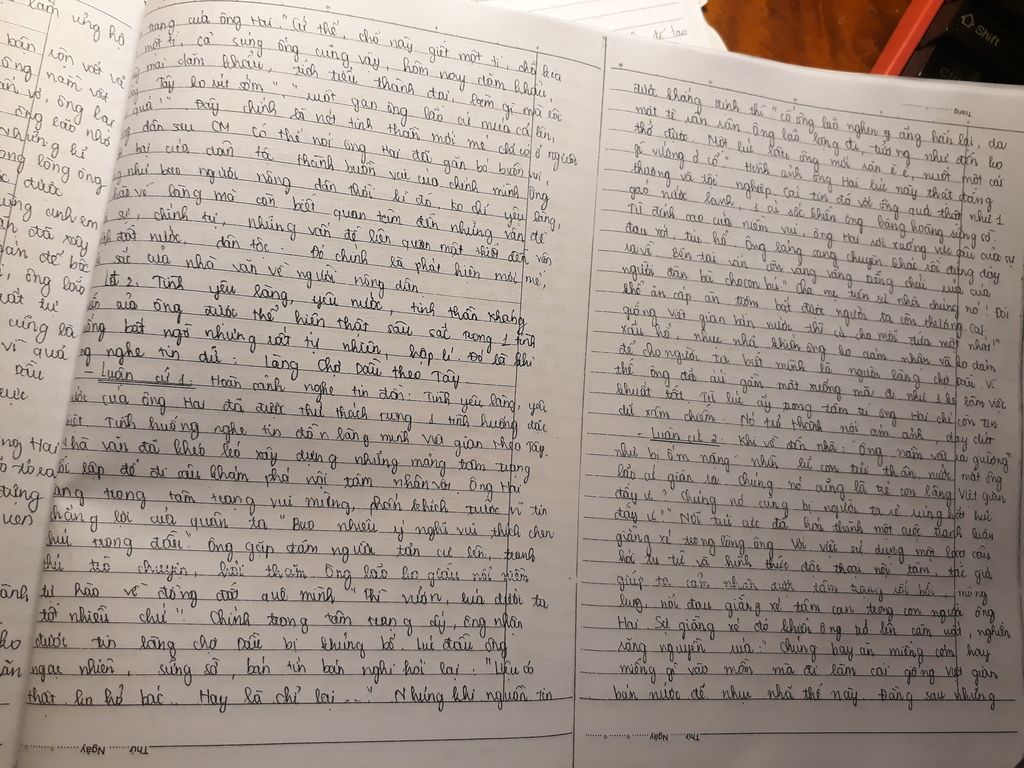 lam ủng hộ
bán
vất vả
nằm vắt
ông lão nhớ
những kỉ
lòng ông
được
anh em
đã xây
để bốc
ông lão
rất tự
cũng là
vì quá
Dầu
ông Hai
trạng của ông Hai. "Cứ thế, chỗ này giết một tí, chỗ kia
một tí, cả súng ống cũng vậy, hôm nay dăm khẩu,
mai dăm khẩu, tích tiểu thành đại, làm gì mà rồi
Tây ko rút sớm" "ruột gan ông lão cứ múa cả lên,
quá!" Đây chính là nét tinh thần mới mẻ chỉ có ở người
dân sau CM. Có thể nói ông Hai đã gắn bó buồn vui,
của dân tộc thành buồn vui của chính mình. Ông
như bao người nông dân thời kì đó, ko chỉ yêu làng,
hào về làng mà còn biết quan tâm đến những vấn đề
sự, chính trị, những vấn đề liên quan mật thiết đến vận
đất nước, dân tộc. Đó chính là phát hiện mới mẻ,
sắc của nhà văn về người nông dân.
LĐ 2. Tình yêu làng, yêu nước, tinh thần kháng
của ông được thể hiện thật sâu sắc trong 1 tình
bất ngờ nhưng rất tự nhiên, hợp lí. Đó là khi
nghe tin dữ: Làng Chợ Dầu theo Tây.
- Luận cứ 1: Hoàn cảnh nghe tin đồn: Tình yêu làng, yêu
của ông Hai đã được thử thách trong 1 tình huống đặc
biệt. Tình huống nghe tin đồn làng mình Việt gian theo Tây.
Nhà văn đã khéo léo xây dựng những mảng tâm trạng
đối lập để đi sâu khám phá nội tâm nhân vật. Ông Hai
đang trong tâm trạng vui mừng, phấn khích trước vì tin
thắng lợi của quân ta "Bao nhiêu ý nghĩ vui thích chen
chúc trong đầu". Ông gặp đám người tản cư lên, tranh
thủ trò chuyện, hỏi thăm. Ông lão ko giấu nổi niềm
tự hào về đồng đất quê mình "Thì vườn, lúa dưới ta
tốt nhiều chứ". Chính trong tâm trạng ấy, ông nhận
được tin làng chợ Dầu bị khủng bố. Lúc đầu ông
ngạc nhiên, sững sờ, bán tín bán nghi hỏi lại: "Liệu có
thật ko hở bác. Hay là chỉ lại..." Nhưng khi nguồn tin
được khẳng định thì "cổ ông lão nghẹn ắng hẳn lại, da
mặt tê rân rân. Ông lão lặng đi, tưởng như đến ko
thở được. Một lúc lâu ông mới rặn è è, nuốt một cái
gì vướng ở cổ". Hình ảnh ông Hai lúc này thật đáng
thương và tội nghiệp. Cái tin đó với ông quả thật như 1
gáo nước lạnh, 1 cú sốc khiến ông bàng hoàng sững sờ.
Từ đỉnh cao của niềm vui, ông Hai rơi xuống vực sâu của sự
đau xót tủi hổ. Ông lảng sang chuyện khác rồi đứng dậy
ra về. Bên tai vẫn còn văng vẳng tiếng chửi rủa của
người đàn bà cho con bú "Cha mẹ tiên sư nhà chúng nó! Đói
khổ ăn cắp ăn trộm bắt được người ta còn thương. Cái
giống Việt gian bán nước thì cứ cho mỗi đứa một nhát!"
xấu hổ, nhục nhã khiến ông ko dám nhận và ko dám
để cho người ta biết mình là người làng chợ Dầu. Vì
thế ông đã cúi gằm mặt xuống mà đi như 1 kẻ làm việc
khuất tất. Từ lúc ấy trong tâm trí ông Hai chỉ còn tin
dữ xâm chiếm. Nó trở thành nỗi ám ảnh, day dứt
- Luận cứ 2: Khi về đến nhà: "Ông nằm vật ra giường"
như bị ốm nặng "nhìn lũ con tủi thân, nước mắt ông
lão cứ giàn ra. Chúng nó cũng là trẻ con làng Việt gian
đấy ư? Chúng nó cũng bị người ta rẻ rúng hắt hủi
đấy ư?" Nỗi tủi cực đã hoá thành một cuộc tranh luận
giằng xé trong lòng ông. Với việc sử dụng một loạt câu
hỏi tu từ và hình thức độc thoại nội tâm, tác giả
giúp ta cảm nhận được tâm trạng rối bời, mông
lung, nỗi đau giằng xé tâm can trong con người ông
Hai. Sự giằng xé đó khiến ông trở lên căm uất, nghiến
răng nguyền rủa: "Chúng bay ăn miếng cơm hay
miếng gì vào mồm mà đi làm cái giống việt gian
bán nước để nhục nhã thế này. Đằng sau những
Thứ
Ngày
Thứ
Ngày
Tháng
Shift